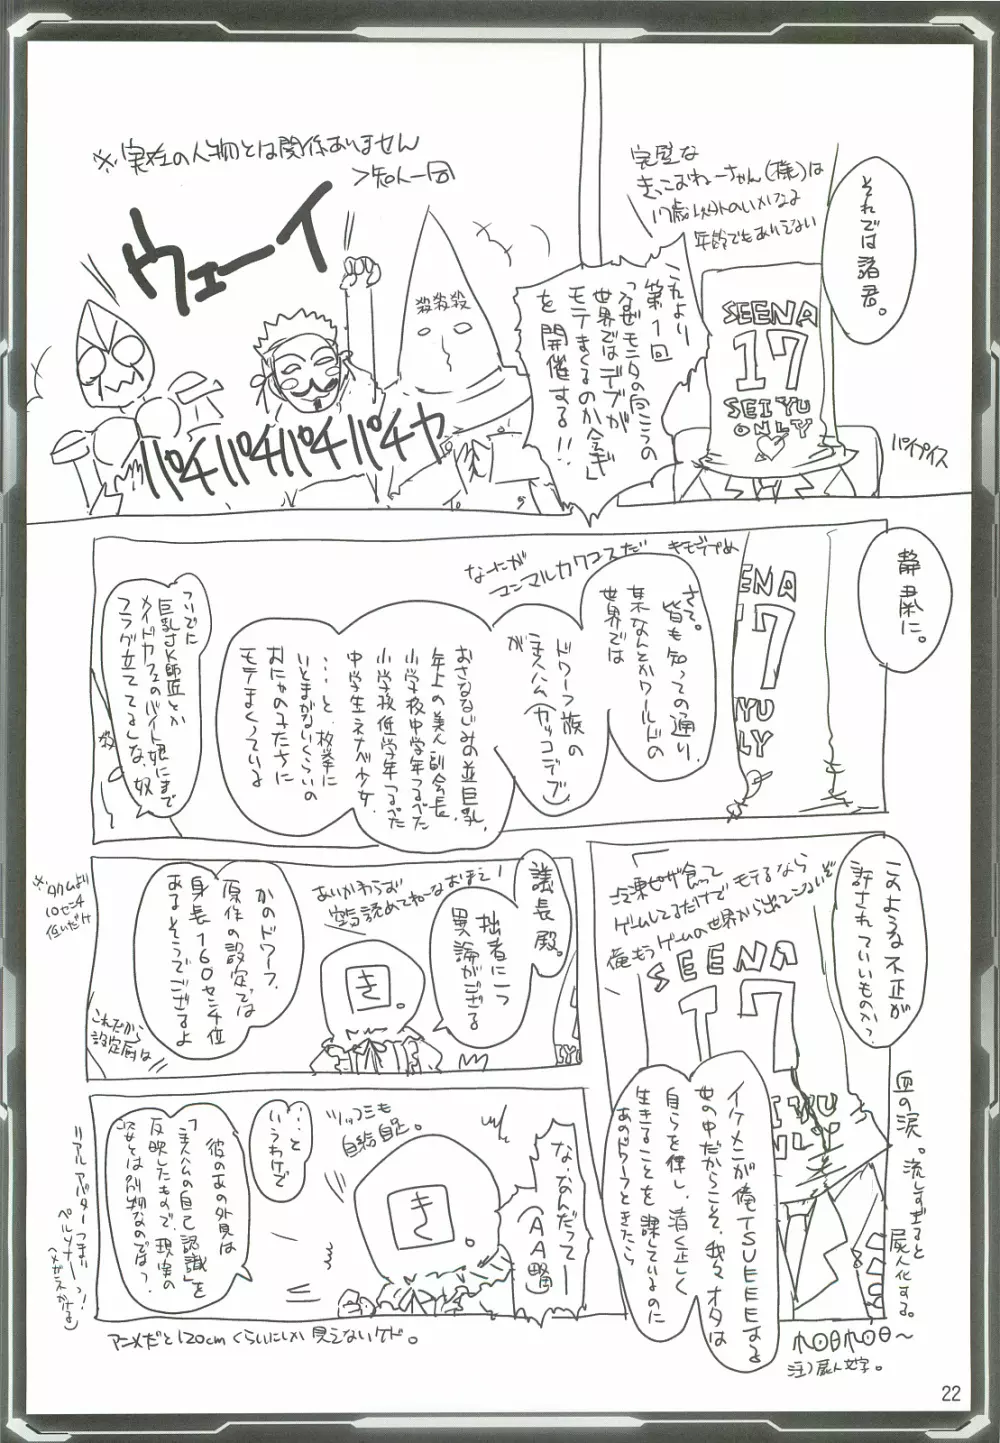 それでは諸君。
完璧な
きっこおねーちゃん(様)は
17歳以外のいかなる
年齢でもありえない
SEENA
17
SEIYU
ONLY
パイプイス
これより
第1回
「なぜモニタの向こうの
世界ではデブが
モテまくるのか会議」
を開催する!!
※実在の人物とは関係ありません
>知人一同
ウェーイ
殺殺殺
パチパチパチパチャ
静粛に。
EENA
17
IYU
LY
キモデブめ
なーにが
マンマルカワユスだ
さて。
皆も知っての通り、
某なんとかワールドの
世界では
ドワーフ族の
主人公(カッコデブ)
が
おさななじみの並巨乳、
年上の美人副会長、
小学校中学年つるぺた
小学校低学年つるぺた
中学生ネナベ少女、
…と、枚挙に
いとまがないくらいの
おにゃの子たちに
モテまくっている
ついでに
巨乳JK師匠とか
メイドカフェのバイト娘にまで
フラグ立ててるしな、奴
殺
このような不正が
許されていいものか?
冷凍ピザ食って
ゲームしてるだけでモテるなら
俺もうゲームの世界から出てこないぞ
SEENA
17
IYU
NL
イケメンが俺TSUEEEEする
世の中だからこそ、我々オタは
自らを律し、清く正しく
生きることを課しているのに
あのドワーフときたら
血の涙。流しすぎると
屍人化する。
注)屍人文字。
議長殿。
拙者に一つ
異論がござる
あいかわらず
空気読めてねーなおまえ!
き。
かのドワーフ、
原作の設定では
身長160センチ位
あるそうでござるよ
※タクムより
10センチ
低いだけ
これだから
設定厨は
な、なんだってー
(AA略)
ツッコミも
自給自足。
き。
…と
いうわけで
彼のあの外見は
「主人公の自己認識」を
反映したもので、現実の
姿とは別物なのでは?
リアルアバターつまり
ペルソナーっ!
(メガネかける)
アニメだと120cmくらいにしか見えないケド。
22